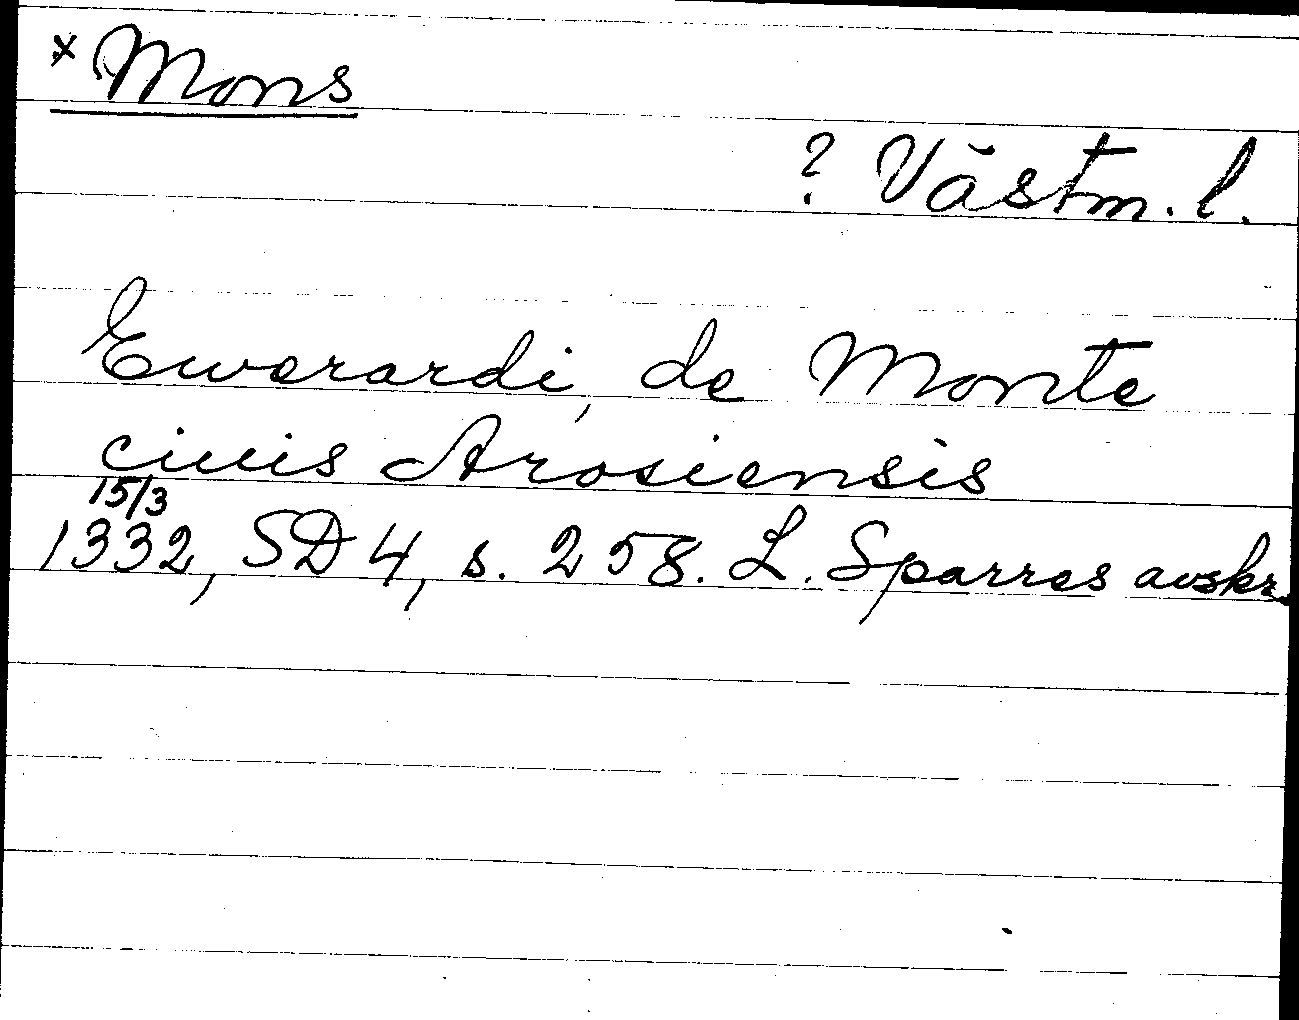 x Mons
? Västm. l.
Ewerardi, de Monte
ciuis Arosiensis
15/3
1332, SD 4, s. 258. L. Sparres avskr.